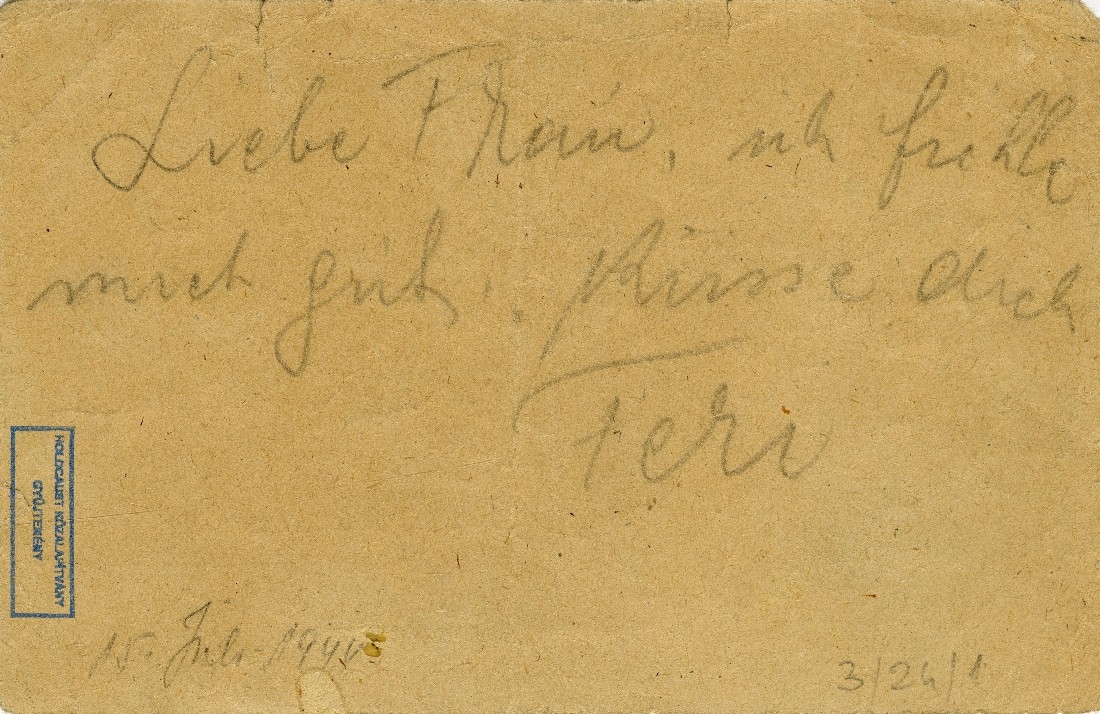 Liebe Frau, ich fühle
mich gut. Küsse dich
Feri
HOLOCAUST KÖZALAPÍTVÁNY
GYŰJTEMÉNY
15. Juli 1944
3/24/1